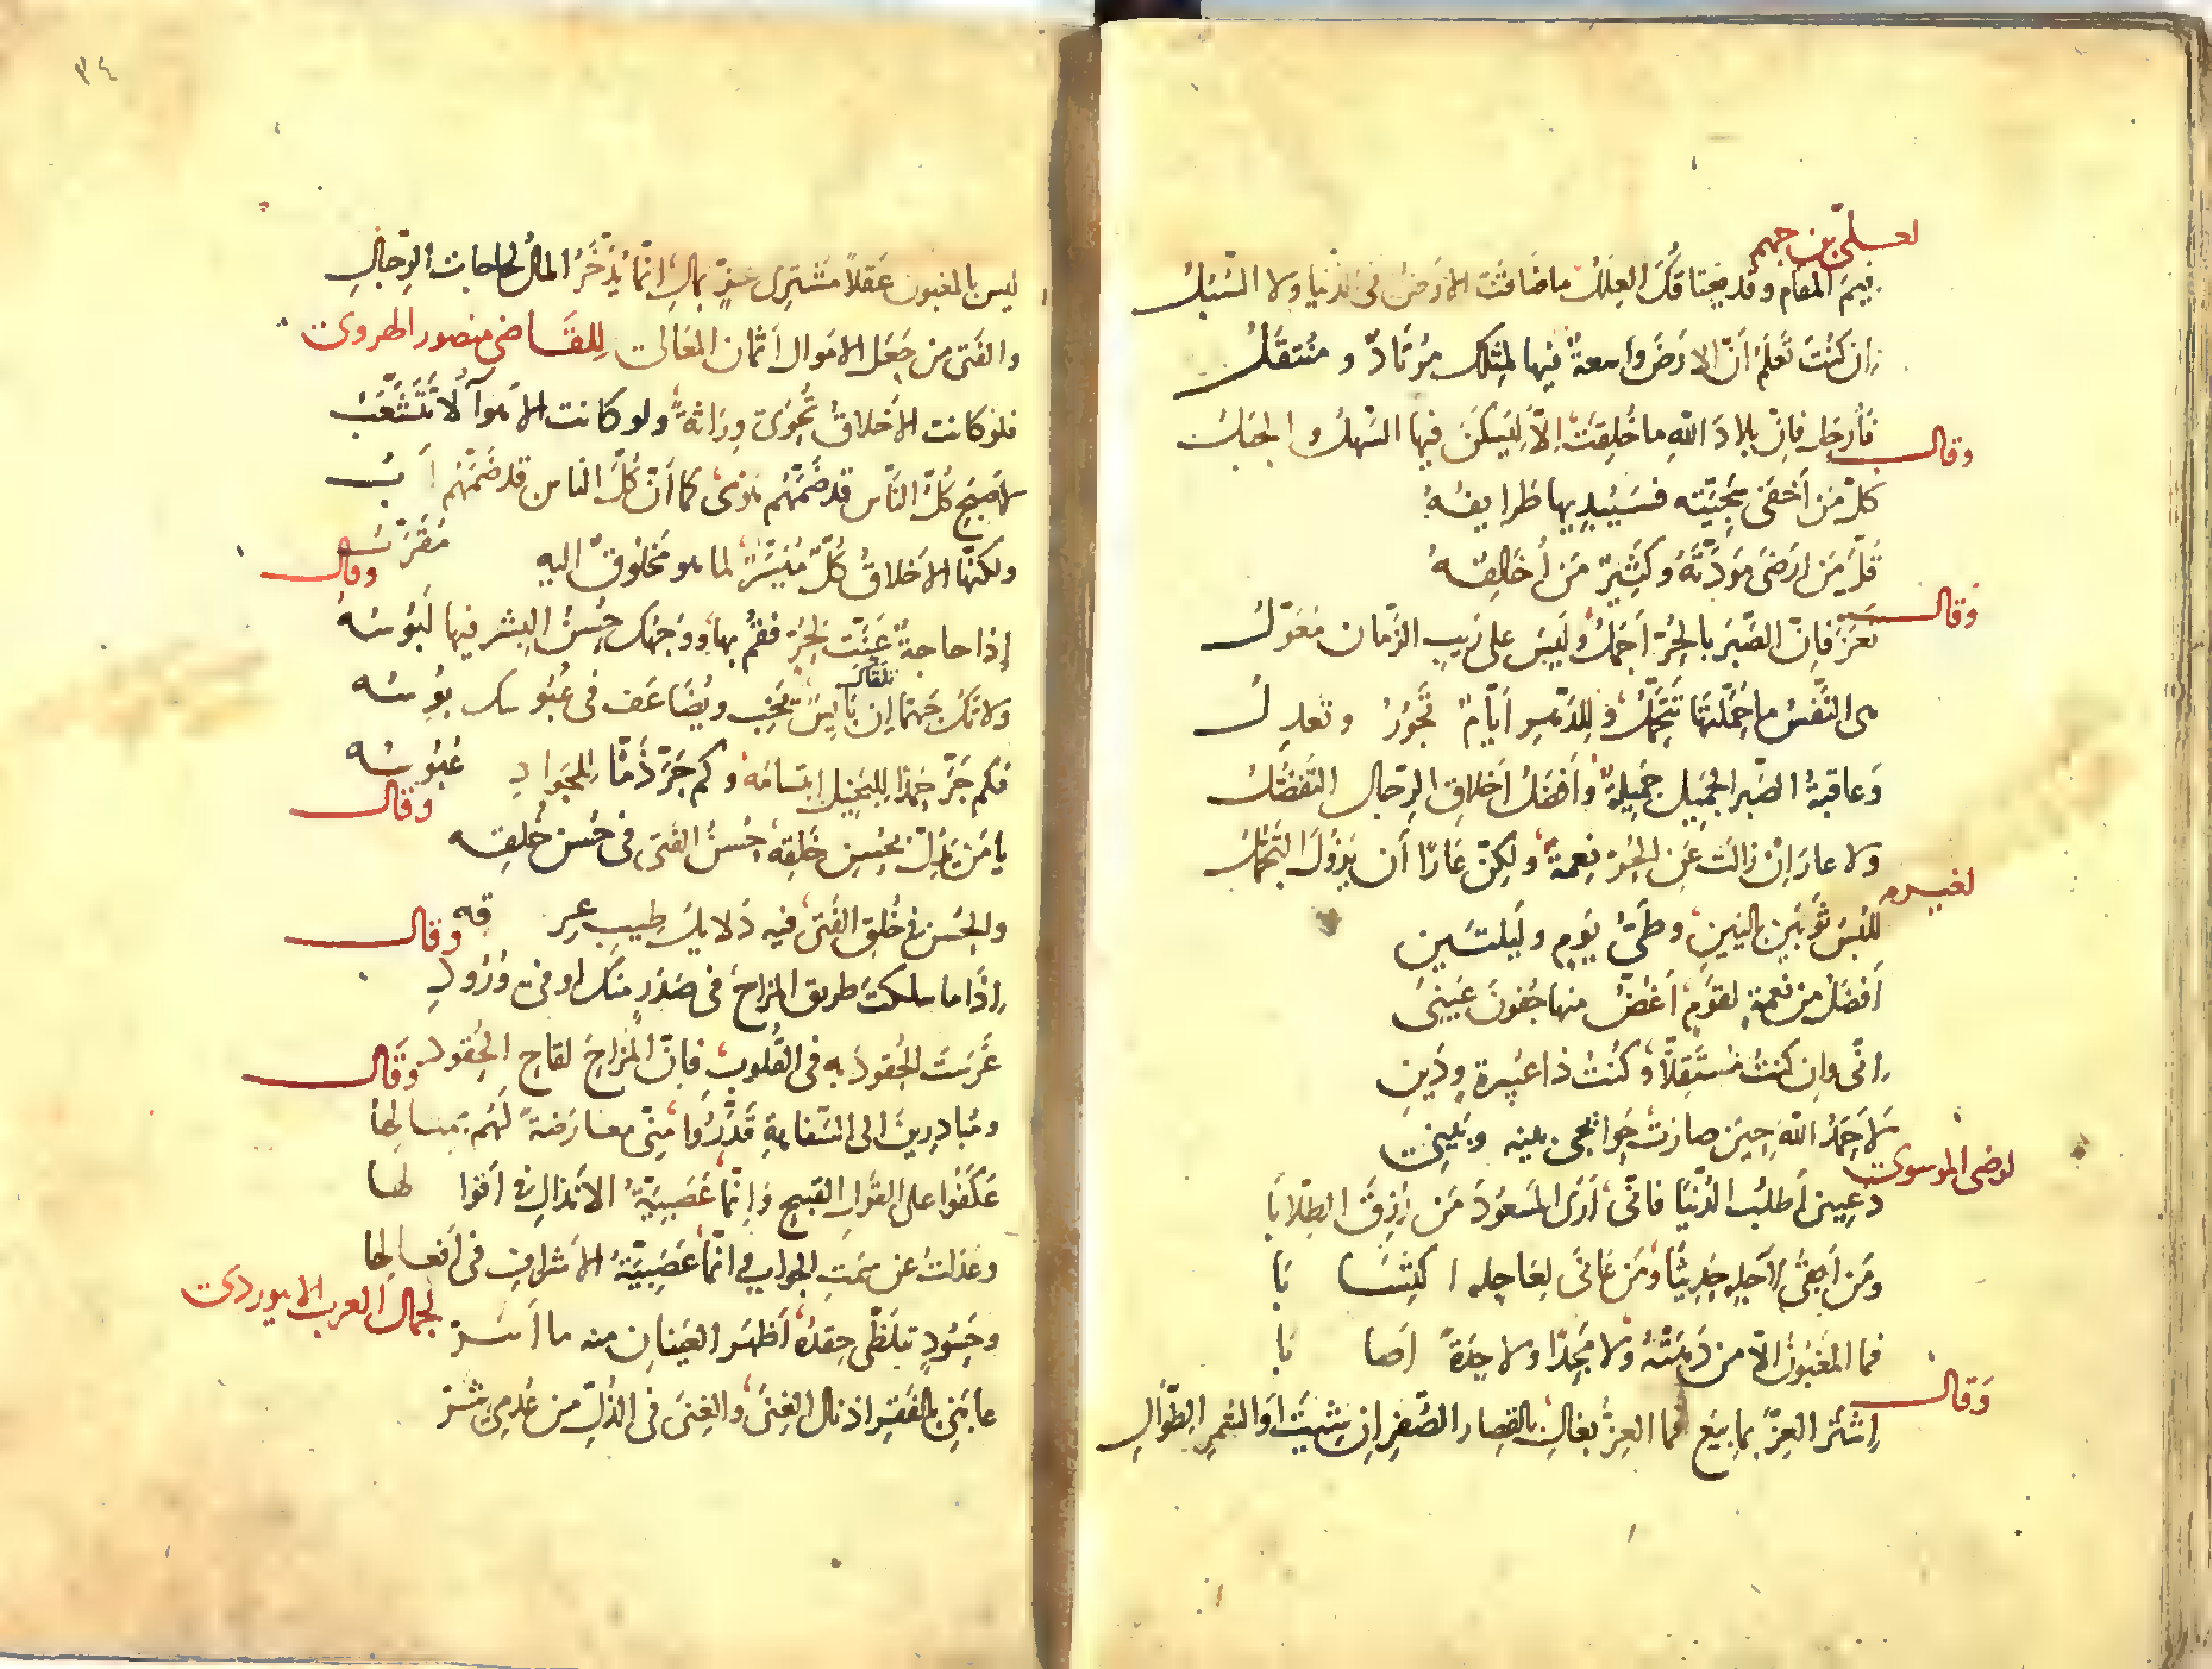 لعلي بن جهم
فيمَ المقام وقد ضاقتك العِلَلُ ما ضاقت الأرض في الدنيا ولا السُّبُلُ
إن كنتَ تعلم أنّ الارض واسعة فيها لمثلك مرتادٌ ومنتقلُ
فأرحل فإنّ بلاد الله ما خُلِقت إلاّ ليسكن فيها السهل والجبلُ
وقال
كلّ من أخفى سجيّته فستبديها طرايفهُ
قلّ من ارضى مودّتهُ وكثيرٌ من أخالفهُ
وقال
تعزَّ فإنّ الصّبر بالحرّ أجملُ وليس على ريب الزّمان معوّلُ
هي النّفس ما حمّلتها تتحمّلُ وللدّهر ايّامٌ تجورُ وتعدلُ
وعاقبةُ الصّبر الجميل جميلةٌ وأفضلُ أخلاق الرّجال التّفضّلُ
ولا عارَ إن زالت عن الحرّ نعمةٌ ولكنّ عارًا أن يزول التجمّلُ
لغيره
للُبسُ ثوبين باليين وطيُّ يومٍ وليلتين
أفضلُ من نعمةٍ لقومٍ أغضّ منها جفون عيني
إنّي وإن كنتُ مستقلاً وكنتُ ذا عيرة ودَينِ
لأحمدُ الله حين صارت حوائجي بينه وبيني
لرضى الموسوى
دعيني أطلبُ الدّنيا فانّى أرى المسعودَ من رُزق الطِّلابا
ومن أبقى لآجله حديثًا ومن عانى لعاجله اكتسابا
فما المغبون إلاّ من دهته ولا مجدًا ولا جِدةً أصابا
وقال
إشترِ العزّ بما بيع فما العزّ بغالِ بالقصار الصّفر إن شئت او السّمر الطّوالِ
٣٤
ليس بالمغبون عقلاً مشترى عزٍّ بمالِ إنّما يُدَّخَرُ المالُ لحاجات الرّجالِ
والفتى من جعل الاموال أثمان المعالى للقاضى منصور الهروى
فلو كانت الأخلاقُ تُحوى وراثةً ولو كانت الأهوآ لا تتشعّبُ
لأصبح كلّ النّاس قد ضمّهم هوًى كما أنّ كلّ الناس قد ضمّهم أبُ
ولكنّها الأخلاقُ كلٌّ ميسّرٌ لما هو مخلوقٌ اليه مقرّب
وقال
إذا حاجةٌ عنّت لحرّ فقُم بها ووجهك حسنُ البشر فيها لبوسُهُ
ولا تك جهمًا إن تلقاك بايسٌ يخب ويُضاعف في عبوسك بوسُه
فكم جرّ حمدًا للبخيل ابتسامه وكم جرّ ذمًّا للجوادِ عبوسُه
وقال
يا من يدلّ بحسن خَلقه حُسنُ الفتى في حُسن خُلقِه
والحُسن في خُلق الفتى فيه دلايلُ طيب عرقه
وقال
إذا ما سلكت طريق المزاح في صدَرٍ منك او في ورودِ
غرست الحُقود به في القلوب فإنّ المزاح لقاح الحقود
وقال
ومُبادرين الى السّفاهة قدّروا منّي معارضةً لهم بمثالها
عكفوا على القول القبيح وإنّما عصبيّةُ الانذال في اقوالها
وعدلتُ عن سمت الجواب وانّما عصبيّةُ الأشراف في أفعالها
لجمال العرب الابيوردى
وحسُودٍ تلظّى حِقدُه أظهر العينان منه ما أسرّ
عابني بالفقر إذ نال الغنى والغنى في الذلّ من عُدمي شرّ